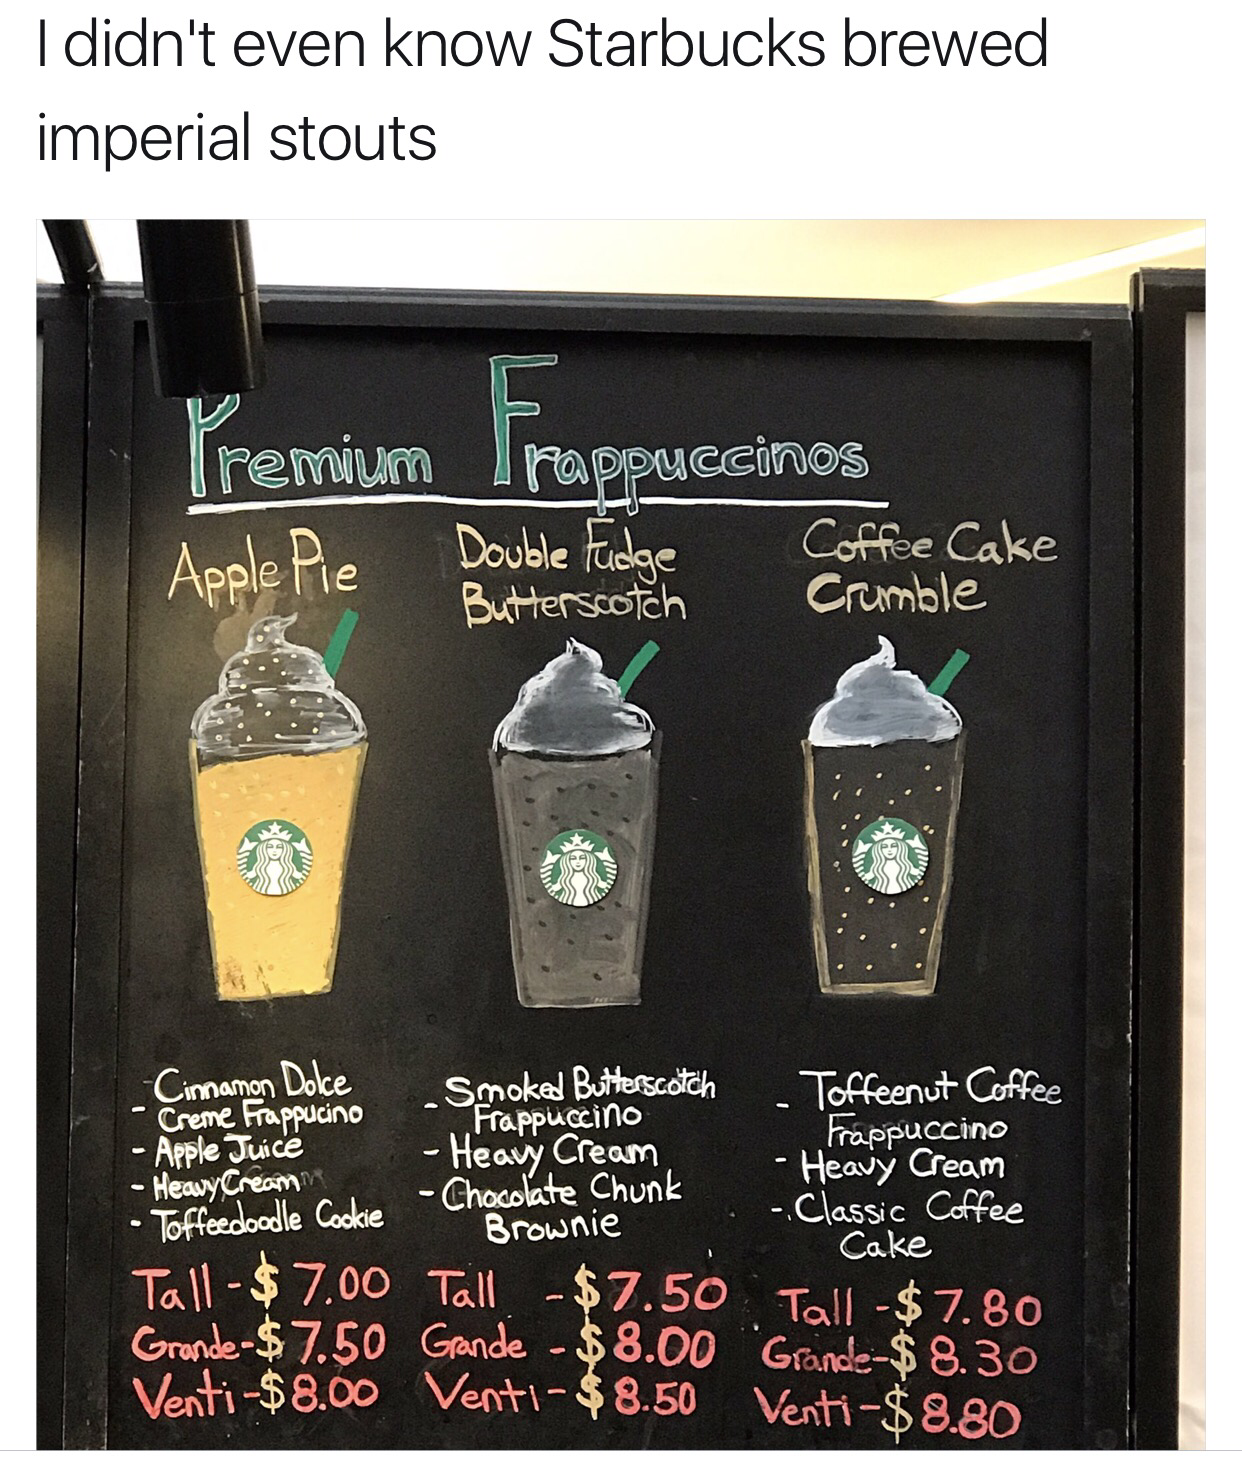 I didn't even know Starbucks brewed
imperial stouts
Premium Frappuccinos
Apple Pie
Double Fudge
Butterscotch
Coffee Cake
Crumble
- Cinnamon Dolce
Creme Frappucino
- Apple Juice
- Heavy Cream
- Toffeedoodle Cookie
Tall - $ 7.00
Grande - $ 7.50
Venti - $ 8.00
- Smoked Butterscotch
Frappuccino
- Heavy Cream
- Chocolate Chunk
Brownie
Tall - $ 7.50
Grande - $ 8.00
Venti - $ 8.50
- Toffeenut Coffee
Frappuccino
- Heavy Cream
- Classic Coffee
Cake
Tall - $ 7.80
Grande - $ 8.30
Venti - $ 8.80